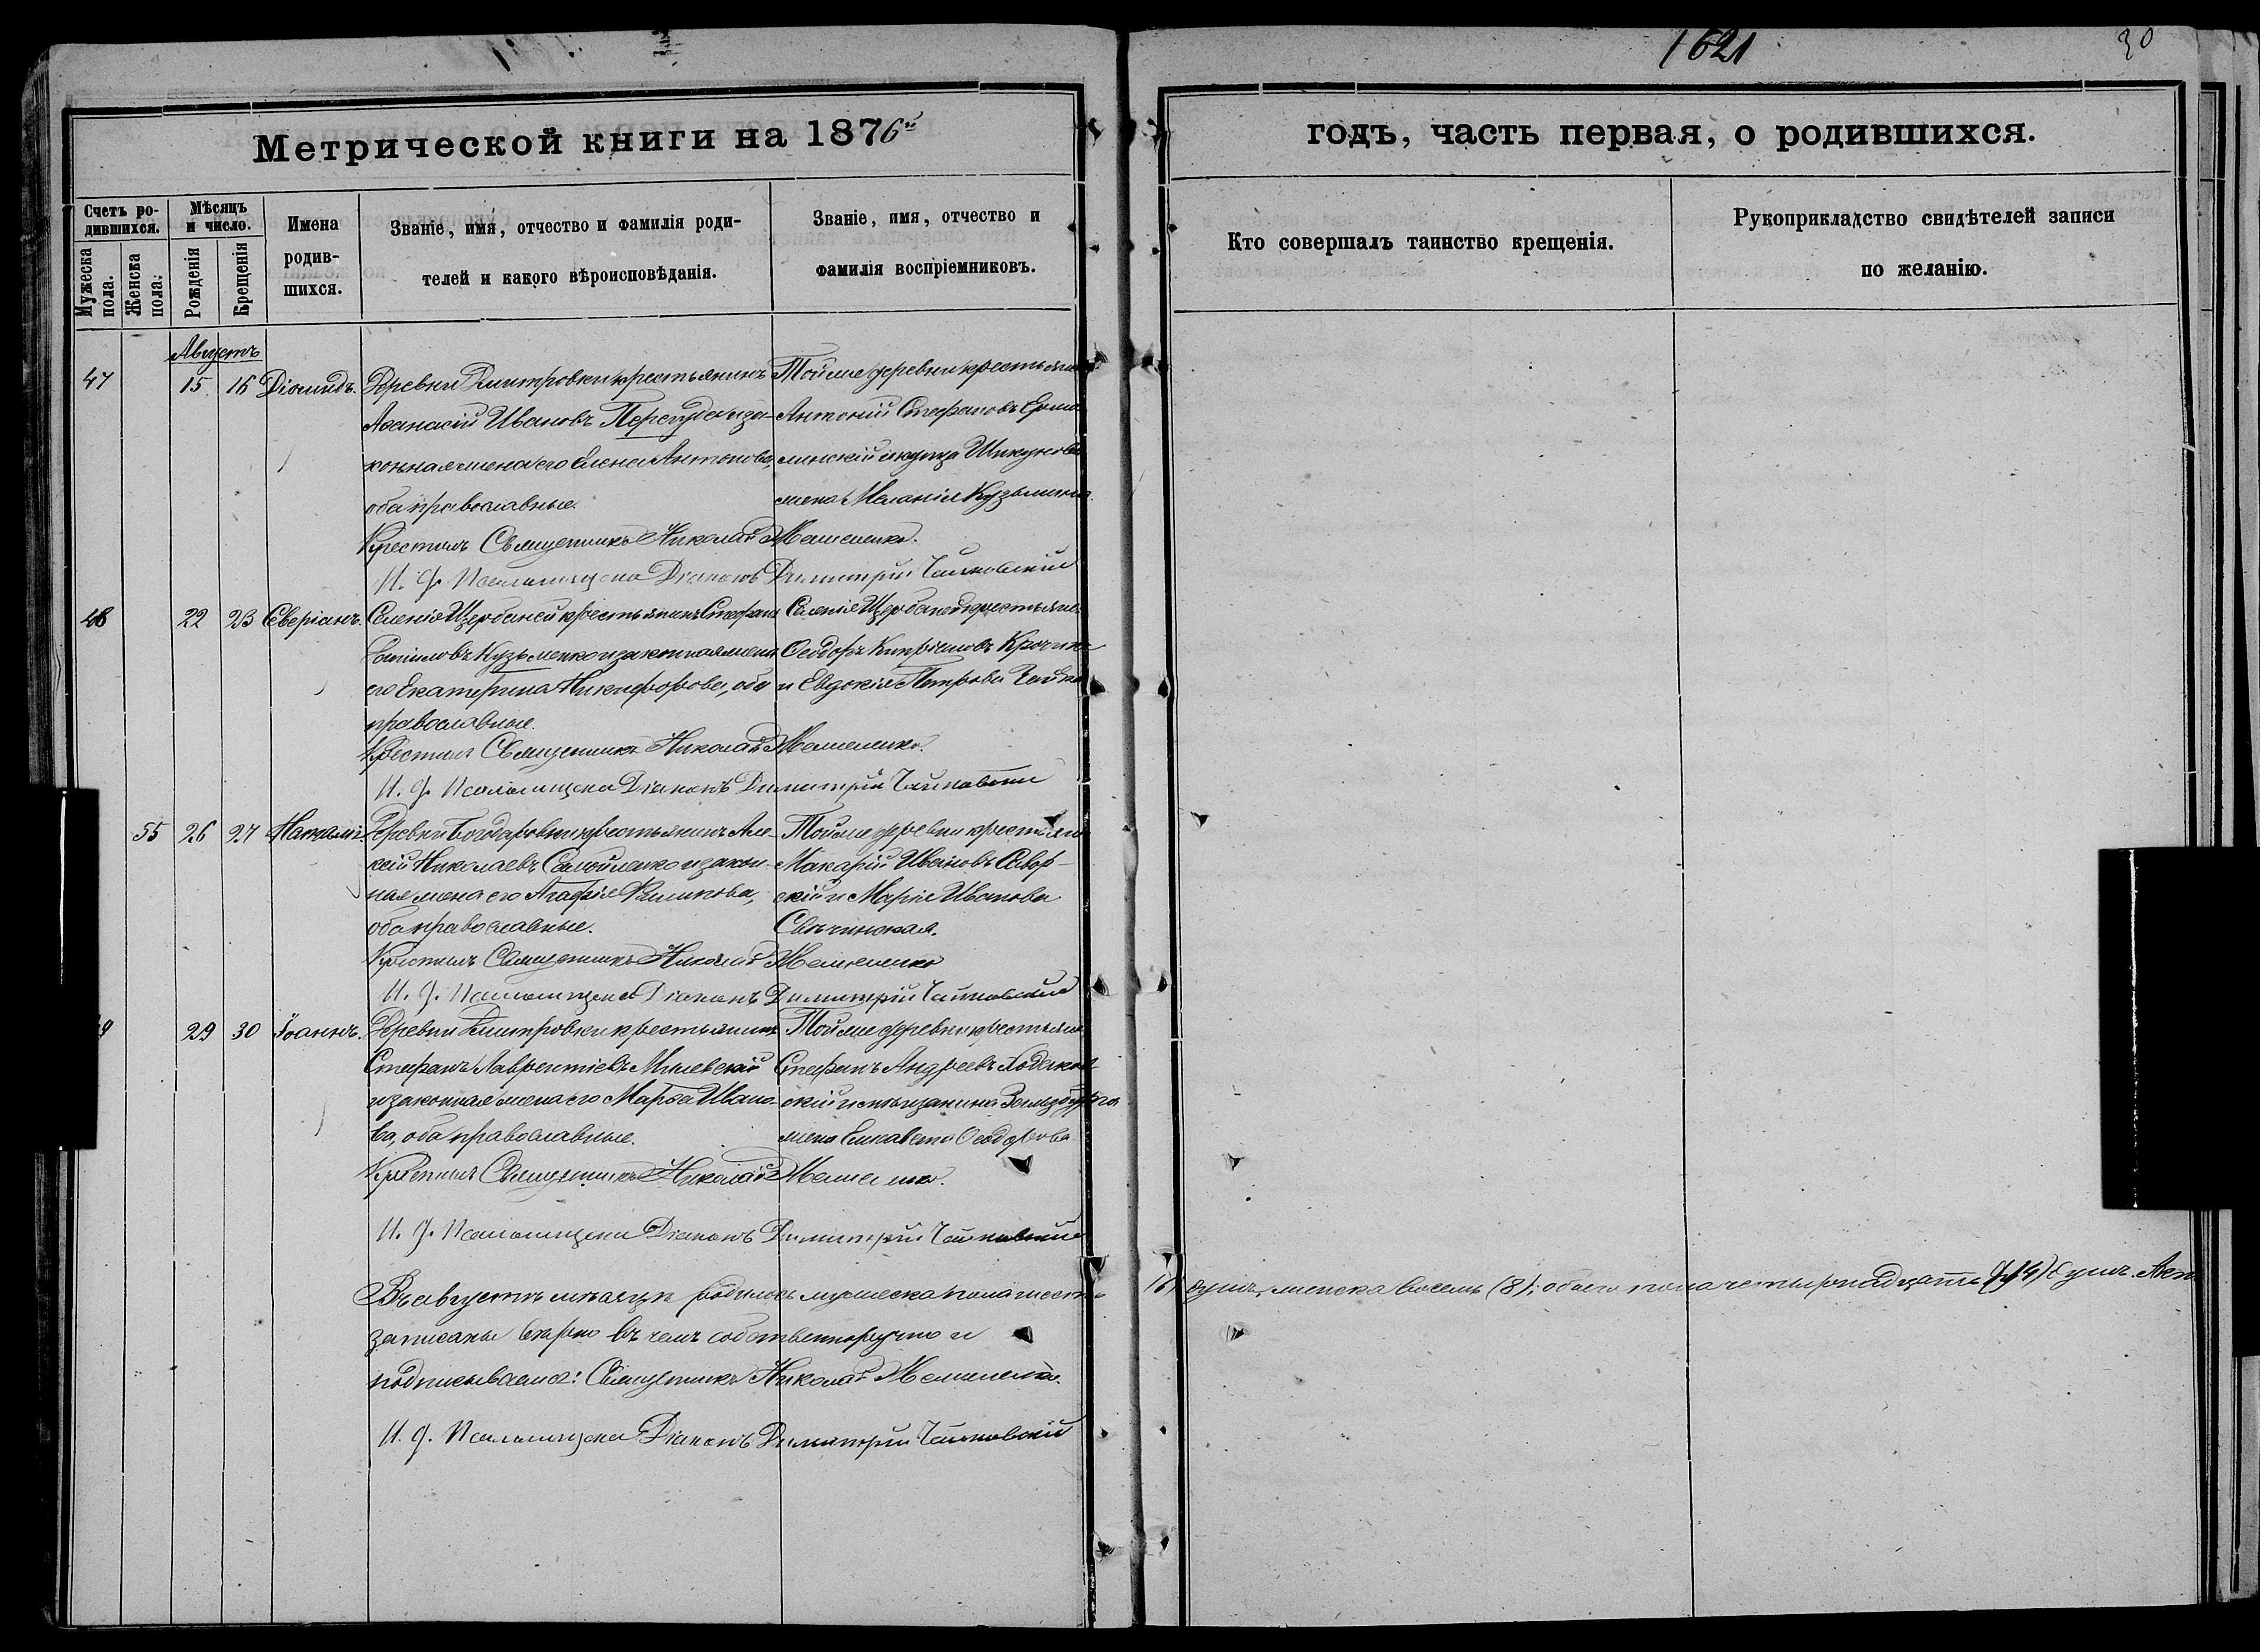 1621
30
Метрической книги на 1876й
годъ, часть первая, о родившихся.
Счетъ ро-
дившихся.
Мужеска
пола.
Женска
пола.
Мѣсяцъ
и число.
Рожденія
Крещенія
Имена
родив-
шихся.
Званіе, имя, отчество и фамилія роди-
телей и какого вѣроисповѣданія.
Званіе, имя, отчество и
фамилія воспріемниковъ.
Кто совершалъ таинство крещенія.
Рукоприкладство свидѣтелей записи
по желанію.
Августъ
47 15 16 Діомидъ. Деревни Дмитровки крестьянинъ Той же деревни крестьянинъ
Аѳанасій Ивановъ и за- Антоній Стефановъ
конная жена его Елена Антонова, жинскій и
оба православные. жена Меланія Кузьмина
Крестилъ Священникъ Николай
И. д. Псаломщика Діаконъ Димитрій Чайковскій
48 22 23 Северіанъ. Селенія Щербаней крестьянинъ Стефанъ Селенія Щербаней крестьяне
Кузьменко и законная жена Ѳеодоръ Кипріановъ
его Екатерина Никифорова, оба и Евдокія Петрова
православные.
Крестилъ Священникъ Николай
И. д. Псаломщика Діаконъ Димитрій Чайковскій
55 26 27 Наталія. Деревни Богодаровки крестьянинъ Але- Той же деревни крестьяне
ксій Николаевъ Самойленко и закон- Макарій Ивановъ
ная жена его Агафія скій и Марія Иванова
оба православные.
Крестилъ Священникъ Николай
И. д. Псаломщика Діаконъ Димитрій Чайковскій
9 29 30 Іоаннъ. Деревни Дмитровки крестьянинъ Той же деревни крестьянинъ
Стефанъ Лаврентіевъ Милевскій Стефанъ Андреевъ Ходаков-
и законная жена его Марѳа Ивано- скій и
ва, оба православные. жена Елисавета Ѳеодорова
Крестилъ Священникъ Николай
И. д. Псаломщика Діаконъ Димитрій Чайковскій
Въ августѣ мѣсяцѣ родилось мужеска пола шесть
(6) душъ, женска восемь (8); обоего пола четырнадцать (14) душъ.
записаны вѣрно въ чемъ собственноручно и
подписываемся: Священникъ Николай
И. д. Псаломщика Діаконъ Димитрій Чайковскій